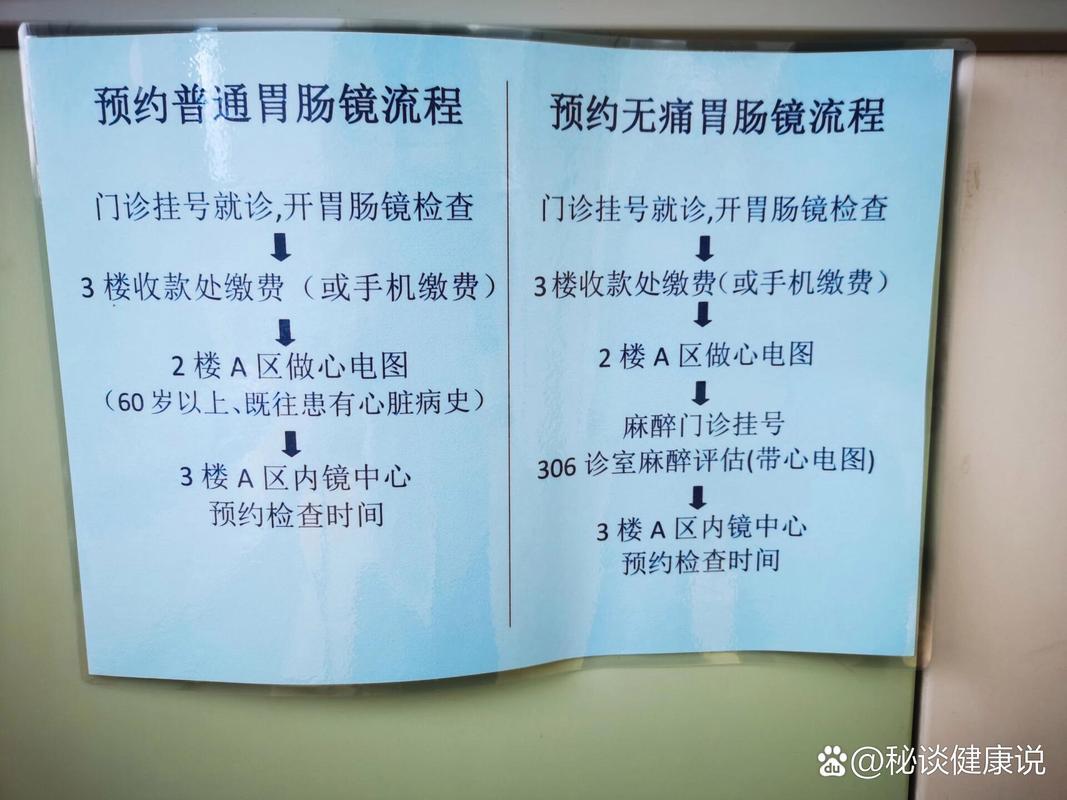 预约普通胃肠镜流程
门诊挂号就诊,开胃肠镜检查
3楼收款处缴费（或手机缴费）
2楼A区做心电图
（60岁以上、既往患有心脏病史）
3楼A区内镜中心
预约检查时间
预约无痛胃肠镜流程
门诊挂号就诊,开胃肠镜检查
3楼收款处缴费（或手机缴费）
2楼A区做心电图
麻醉门诊挂号
306诊室麻醉评估(带心电图)
3楼A区内镜中心
预约检查时间
du @秘谈健康说